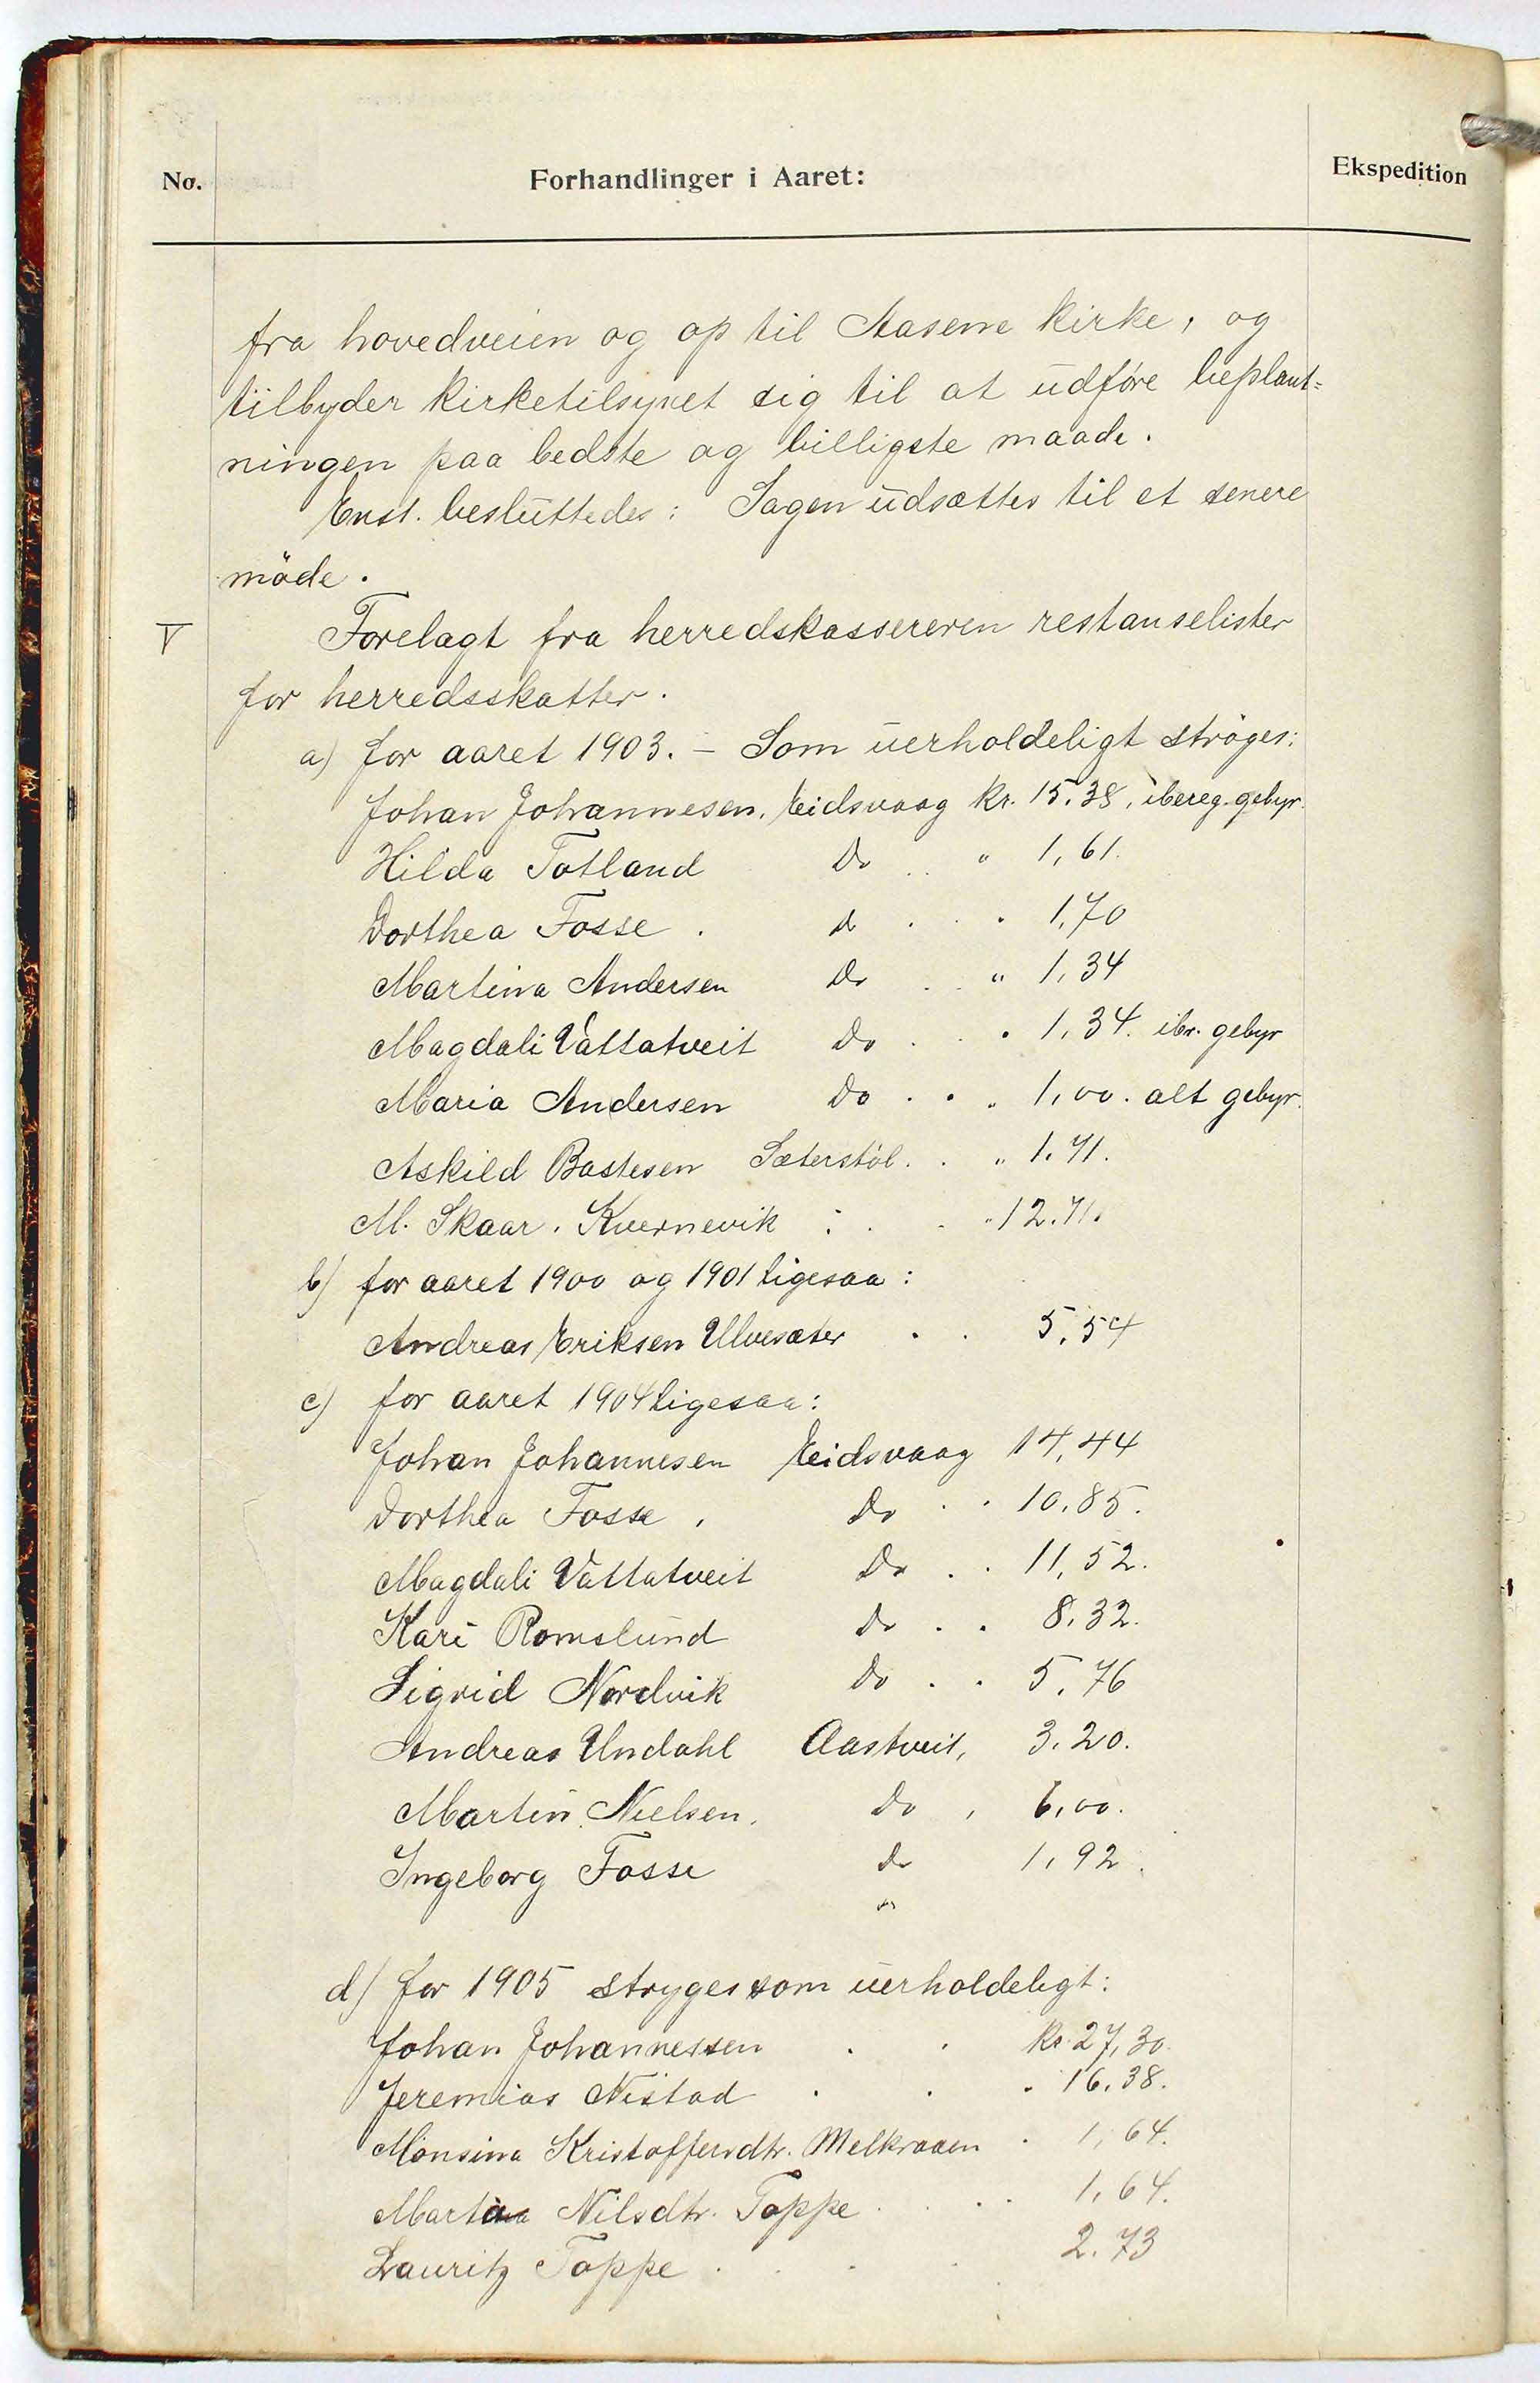 No. Forhandlinger i Aaret: Ekspedition
fra hovedveien og op til Aasene kirke, og
tilbyder kirketilsynet sig til at udføre beplant=
ningen paa bedste og billigste maade.
Enst. besluttedes: Sagen udsættes til et senere
møde.
V Forelagt fra herredskassereren restanselister
for herredsskatter.
a) for aaret 1903. – Som uerholdeligt strøges:
Johan Johannesen, Eidsvaag kr. 15,38, ibereg. gebyr.
Hilda Totland Do " 1,61.
Dorthea Fosse . do . . 1,70
Martina Andersen Do . " 1,34
Magdali Vattatveit Do . . 1,34. ibr. gebyr
Maria Andersen Do . . " 1,00. alt gebyr.
Askild Bastesen Sæterstøl . . " 1.71.
M. Skaar. Kvernevik . . " 12.71.
b) for aaret 1900 og 1901 ligesaa:
Andreas Eriksen Ulvesæter . . 5,54
c) for aaret 1904 ligesaa:
Johan Johannesen Eidsvaag 14,44
Dorthea Fosse , Do . . 10.85.
Magdali Vattatveit Do . . 11,52.
Kari Romslund Do . . 8,32.
Sigrid Nordvik Do . . 5,76
Andreas Undahl Aastveit, 3.20.
Martin Nielsen, Do , 6,00.
Ingeborg Fosse do 1,92.
"
d) for 1905 stryges som uerholdeligt:
Johan Johannessen . . kr. 27,30.
Jeremias Nistad . . . 16,38.
Monsina Kristoffersdtr. Melkraaen . 1,64.
Martha Nilsdtr. Toppe . . . 1,64.
Lauritz Toppe . . . 2.73